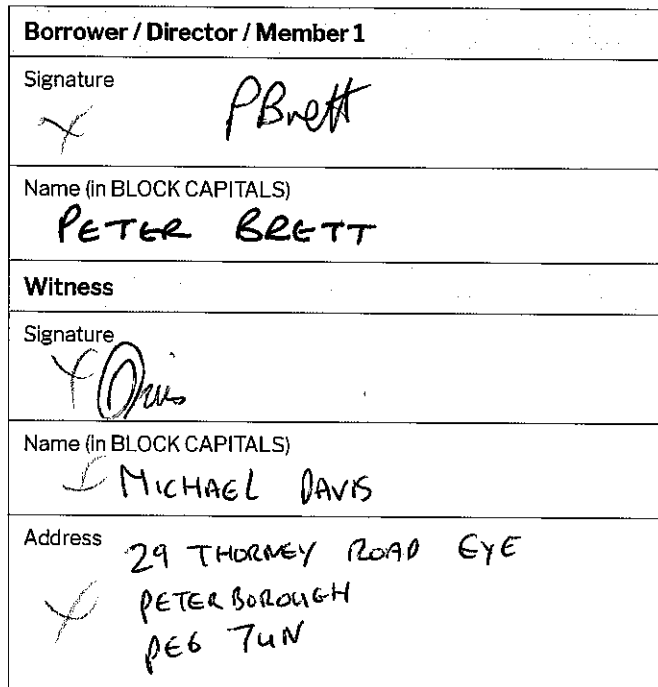 Borrower / Director / Member 1
Signature
PBrett
Name (in BLOCK CAPITALS)
PETER BRETT
Witness
Signature
Name (in BLOCK CAPITALS)
MICHAEL DAVIS
Address
29 THORNEY ROAD EYE
PETERBOROUGH
PE6 7UN